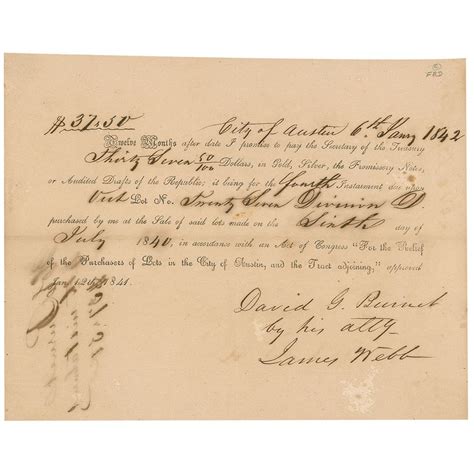 $37.50
City of Austin 6th Janry 1842
Twelve Months after date I promise to pay the Secretary of the Treasury
Thirty Seven 50/100 Dollars, in Gold, Silver, the Promissory Notes,
or Audited Drafts of the Republic; it being for the fourth Instament due when
Out Lot No. Twenty Seven Division D
purchased by me at the Sale of said lots made on the Sixth day of
July 1840, in accordance with an Act of Congress "For the Relief
of the Purchasers of Lots in the City of Austin, and the Tract adjoining," approved
Jan. 12th 1841.
David G. Burnet
by his atty
James Webb